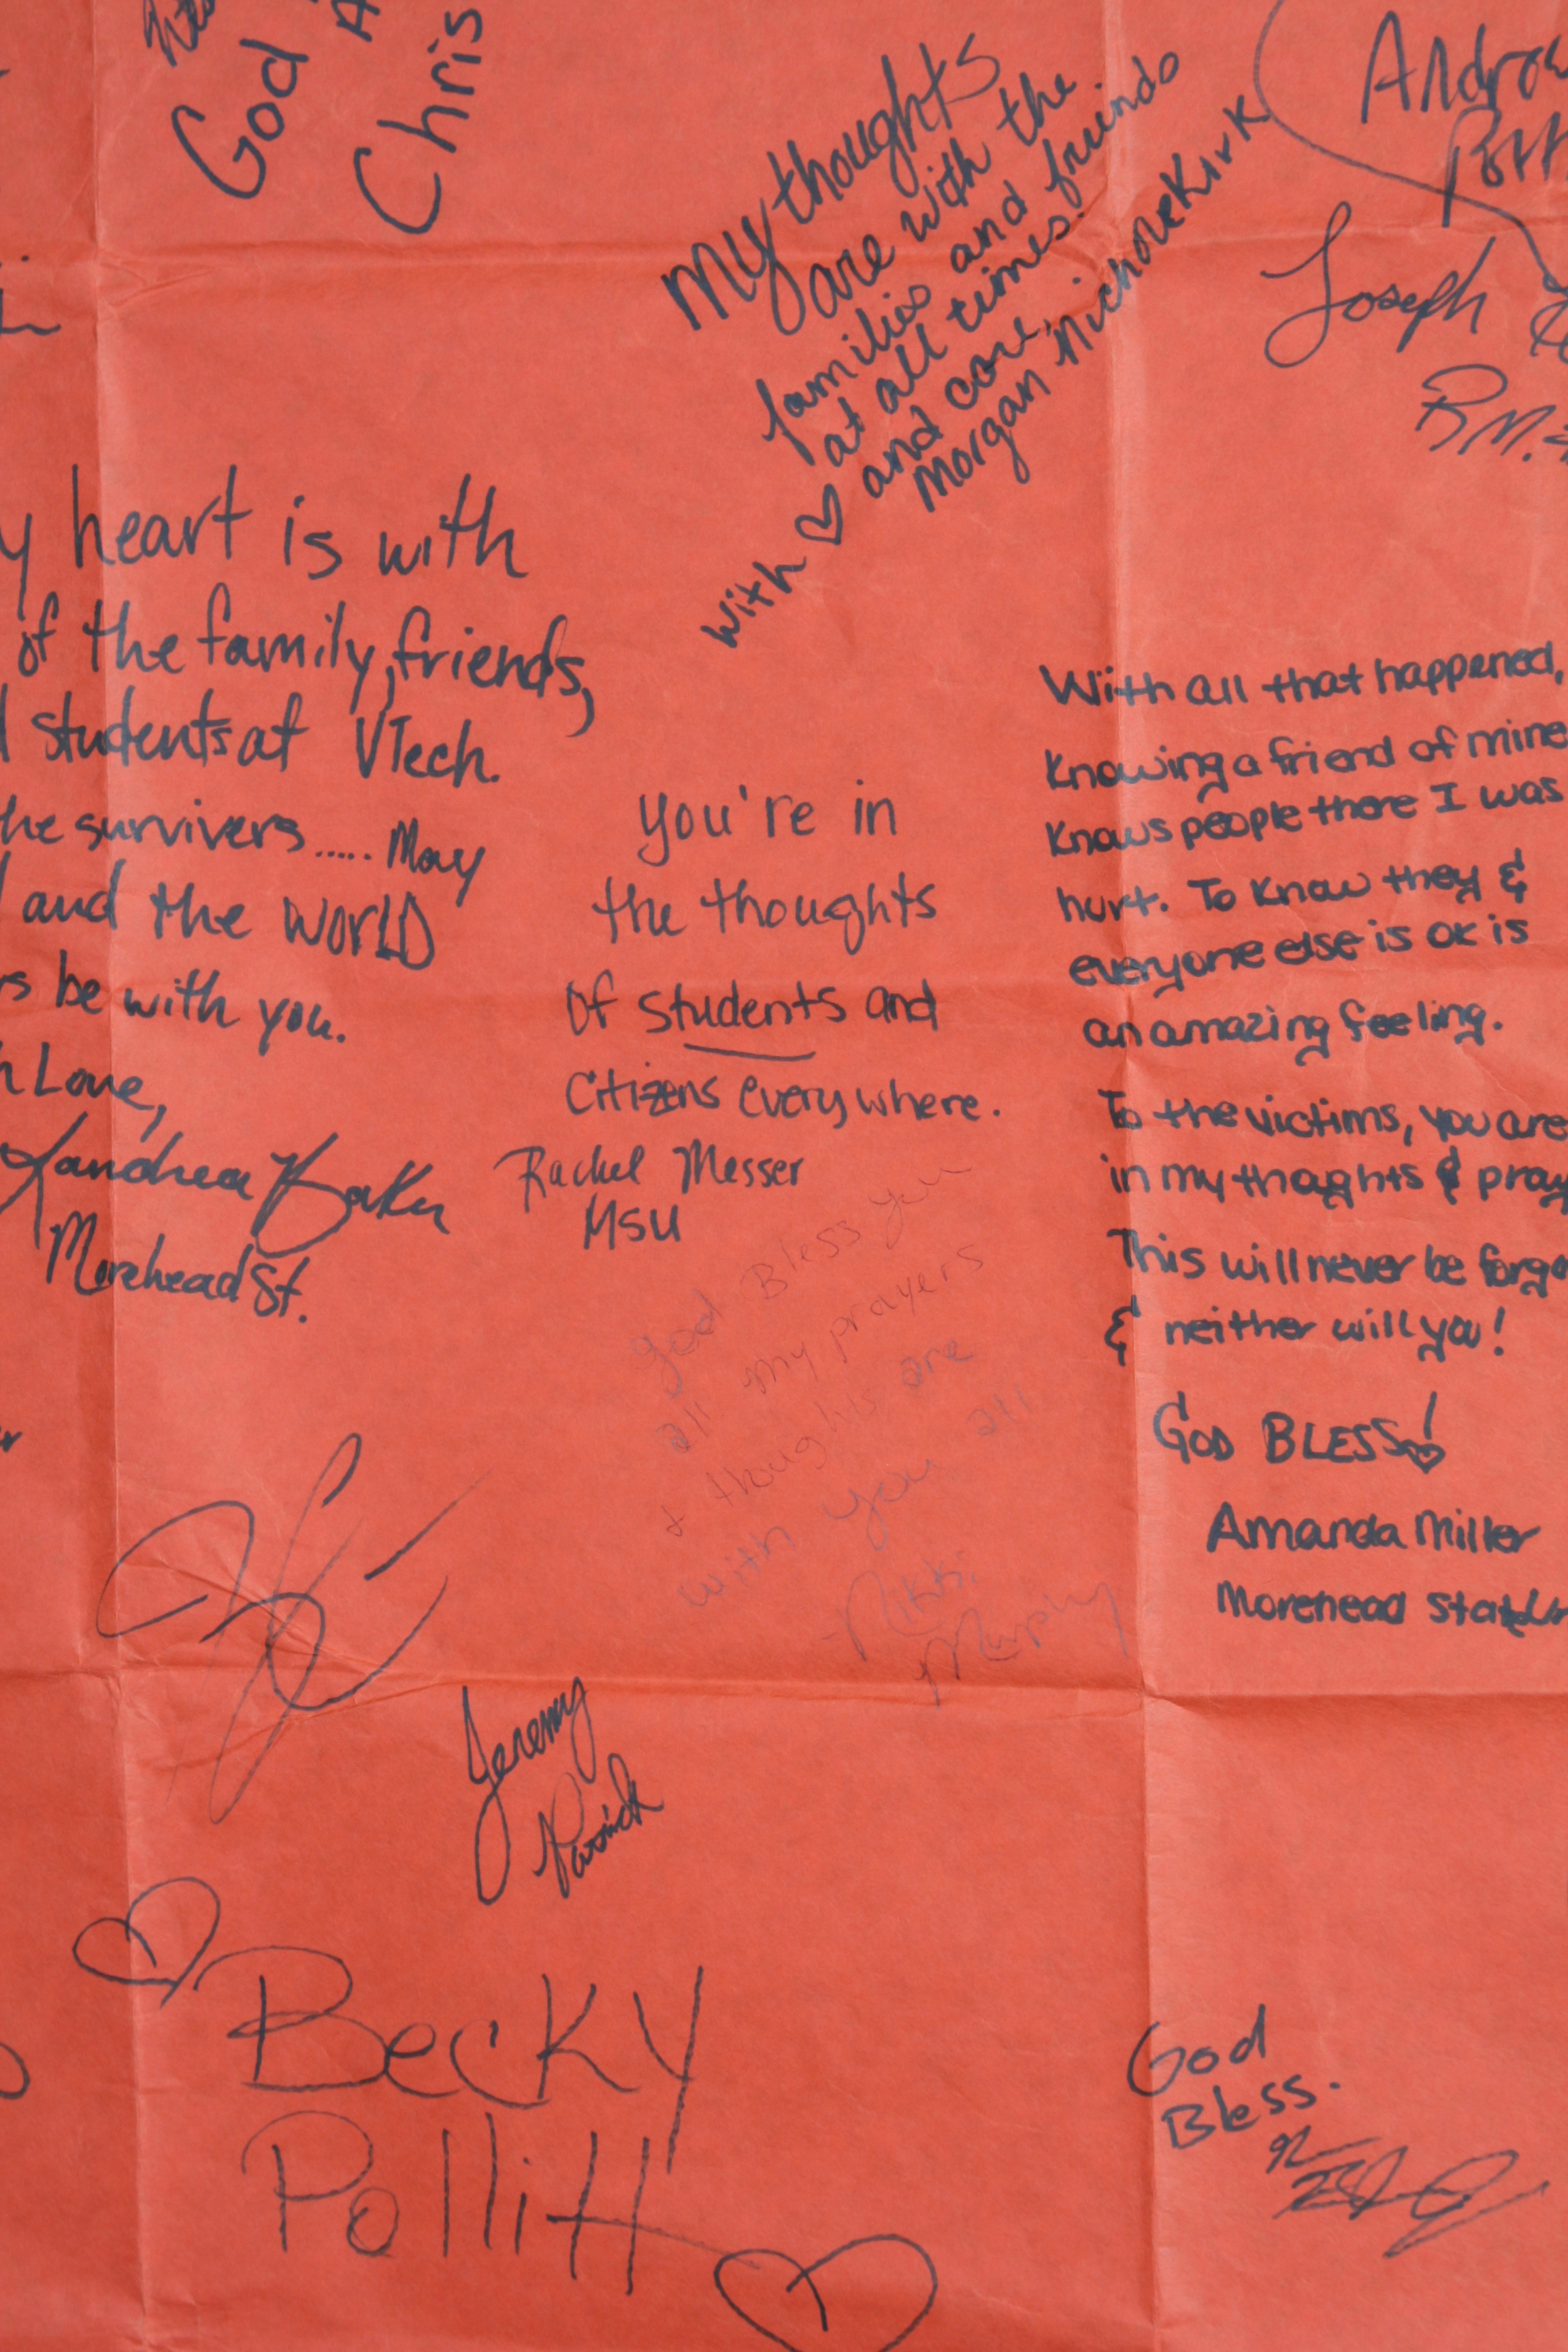 God
Chris
My thoughts
are with the
families and friends
at all times.
With ♡ and care,
Morgan Nichole Kirk
Joseph
R.M.
y heart is with
of the family, friends,
students at VTech.
he survivers..... May
and the WORLD
s be with you.
h Love,
Landrea Baker
Morehead St.
you're in
the thoughts
of students and
Citizens everywhere.
Rachel Messer
MSU
With all that happened,
Knowing a friend of mine
Knows people there I was
hurt. To know they &
everyone else is ok is
an amazing feeling.
To the victims, you are
in my thoghts & pray
This will never be forgo
& neither will you!
GOD BLESS!
Amanda Miller
Morehead State U
god Bless you
all my prayers
& thoughts are
with you all
-Nikki
Murphy
Jeremy
Becky
Pollitt
God
Bless.